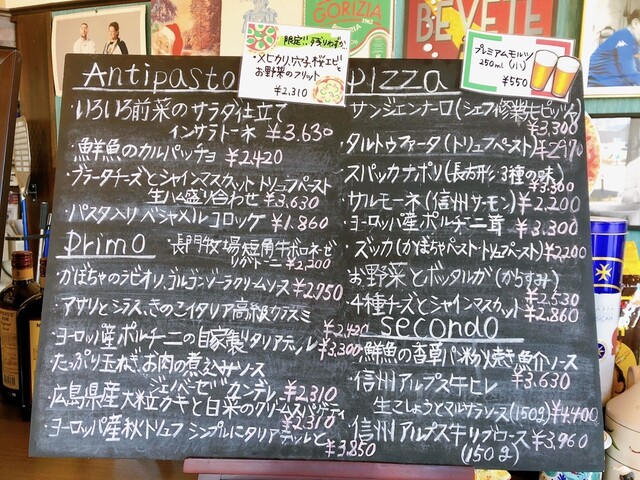 GORIZIA
BEVETE
限定!!
・メヒカリ、穴子、桜エビと
お野菜のフリット
¥2,310
プレミアムモルツ
250ml(小)
¥550
Antipasto
・いろいろ前菜のサラダ仕立て
インサラトーネ ¥3,630
・鮮魚のカルパッチョ ¥2,420
・ブラータチーズとシャインマスカット トリュフペースト
生ハム盛り合わせ ¥3,630
・パスタ入りベシャメルコロッケ ¥1,860
Primo
長門牧場短角牛ボロネーゼ
リガトーニ ¥2,200
・かぼちゃのラビオリ、ゴルゴンゾーラクリームソース ¥2,950
・アサリとシラス、きのこイタリア高級カラスミ
¥2,420
・ヨーロッパ産ポルチーニの自家製タリアテッレ ¥3,300
・たっぷり玉ねぎ、お肉の煮込みソース
ジェノベーゼ カンデレ ¥2,310
・広島県産大粒カキと白菜のクリームスパゲッティ
¥2,310
・ヨーロッパ産秋トリュフ シンプルにタリアテッレと
¥3,850
pizza
・サンジェンナーロ(シェフ修業先ピッツァ)
¥3,300
・タルトゥファータ(トリュフペースト) ¥2,970
・スパッカナポリ(長方形、3種の味)
¥3,300
・サルモーネ(信州サーモン) ¥2,200
・ヨーロッパ産ポルチーニ茸 ¥3,300
・ズッカ(かぼちゃペースト・トリュフペースト) ¥2,200
・お野菜とボッタルガ(からすみ)
¥2,530
・4種チーズとシャインマスカット ¥2,860
secondo
・鮮魚の香草パン粉焼き魚介ソース
¥3,630
・信州アルプス牛ヒレ
生こしょうとマルサラソース(150g) ¥4,400
・信州アルプス牛リブロース ¥3,960
(150g)